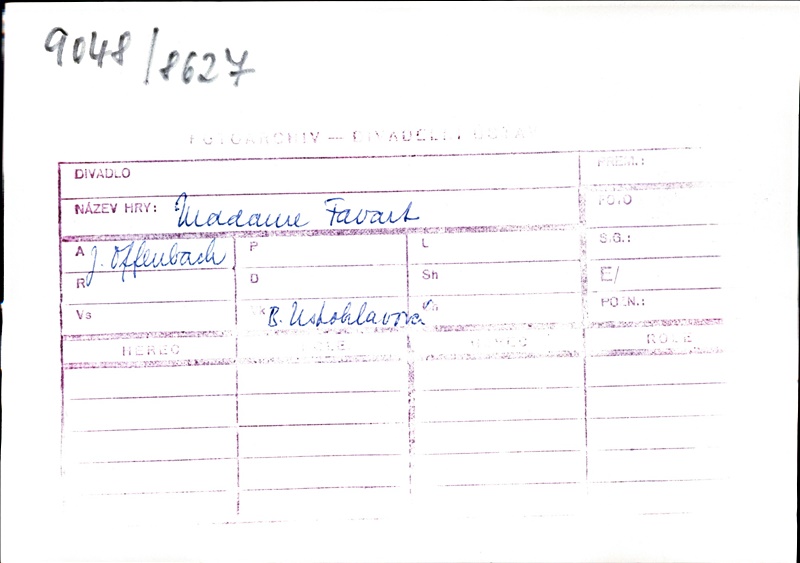 9048/8627
FOTOARCHIV — DIVADELNÍ ÚSTAV
DIVADLO
PREM.:
NÁZEV HRY: Madame Favart
FOTO
A J. Offenbach
P
L
S.G.:
R
D
Sh
E/
Vs
B.
POZN.:
HEREC
ROLE
HEREC
ROLE